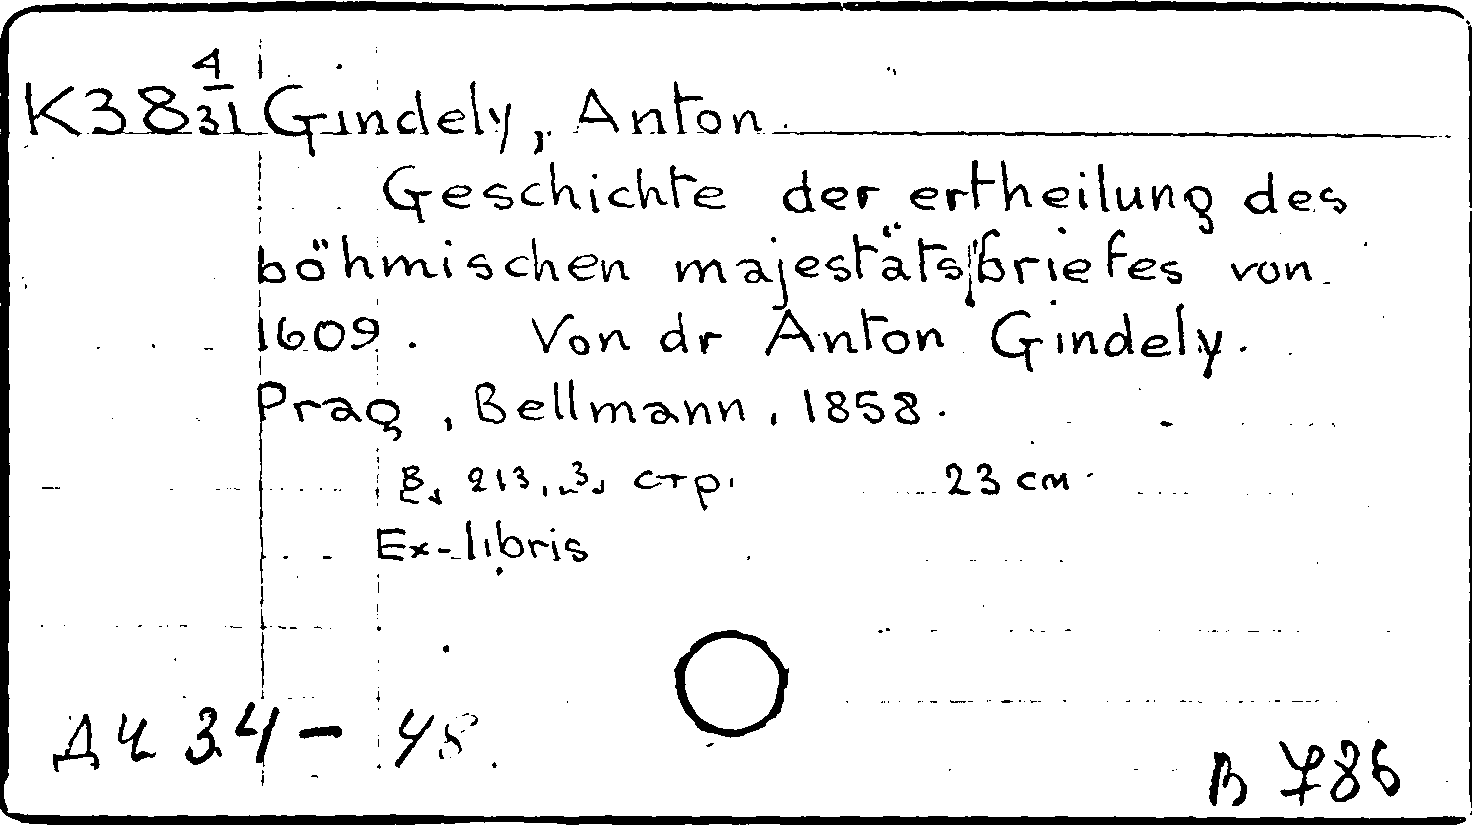 K38 4/31 Gindely, Anton.
Geschichte der ertheilung des
böhmischen majestätsbriefes von
1609. Von dr Anton Gindely.
Prag, Bellmann, 1858.
8, 213, 3, стр. 23 см
Ex-libris
ДЧ 34 - 48.
В 786